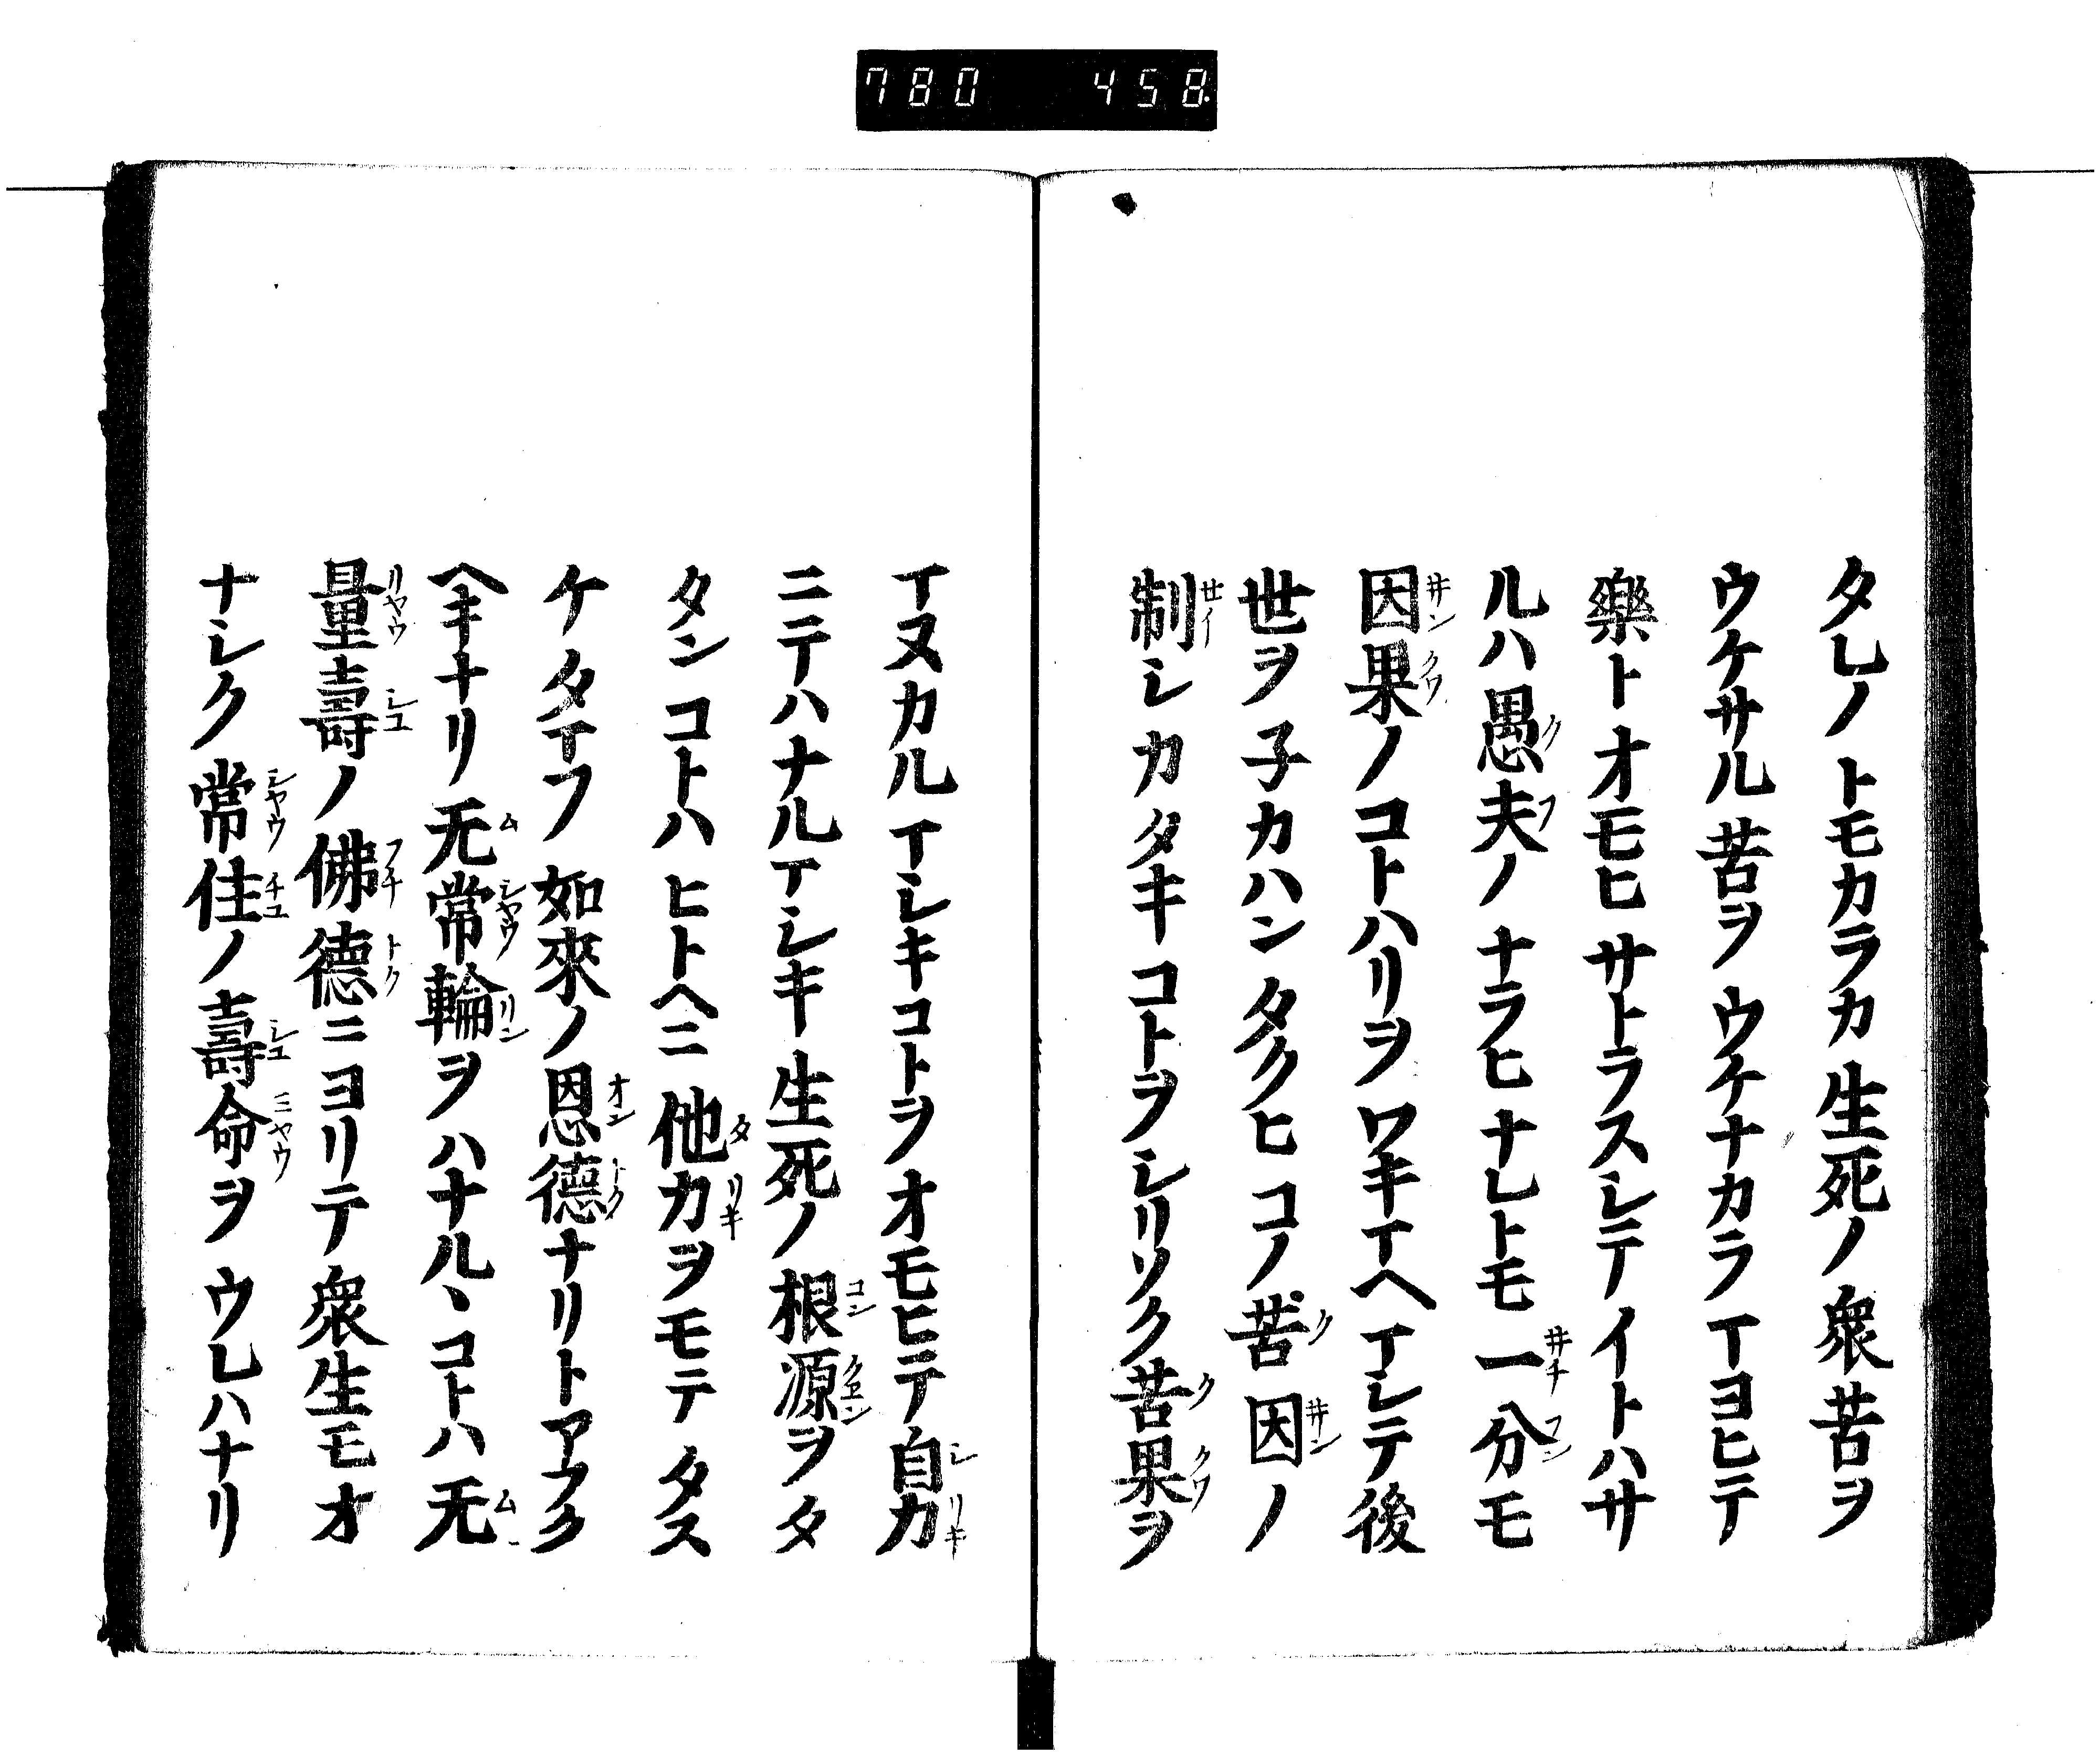 780 458
タレノトモカラカ生死ノ衆苦ヲ
ウケサル苦ヲウケナカラマヨヒテ
樂トオモヒサトラスシテイトハサ
ルハ愚夫ノナラヒナレトモ一分モ
因果ノコトハリヲワキマヘマシテ後
世ヲ子カハンタクヒコノ苦因ノ
制シカタキコトヲシリソク苦果ヲ
マヌカルマシキコトヲオモヒテ自力
ニテハナルマシキ生死ノ根源ヲタ
タンコトハヒトヘニ他力ヲモテタス
ケタマフ如來ノ恩德ナリトアフク
ヘキナリ无常輪ヲハナルヽコトハ无
量壽ノ佛德ニヨリテ衆生モオ
ナシク常住ノ壽命ヲウレハナリ